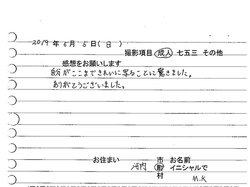 2019年 5月 5日(日)
撮影項目 成人 七五三 その他
感想をお願いします
自分がここまできれいに写ることに驚きました。
ありがとうございました。
お住まい 市 お名前
河内 町 イニシャルで
村 M.K